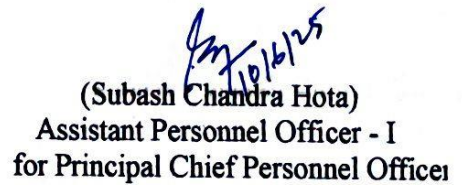 10/6/25
(Subash Chandra Hota)
Assistant Personnel Officer - I
for Principal Chief Personnel Officer